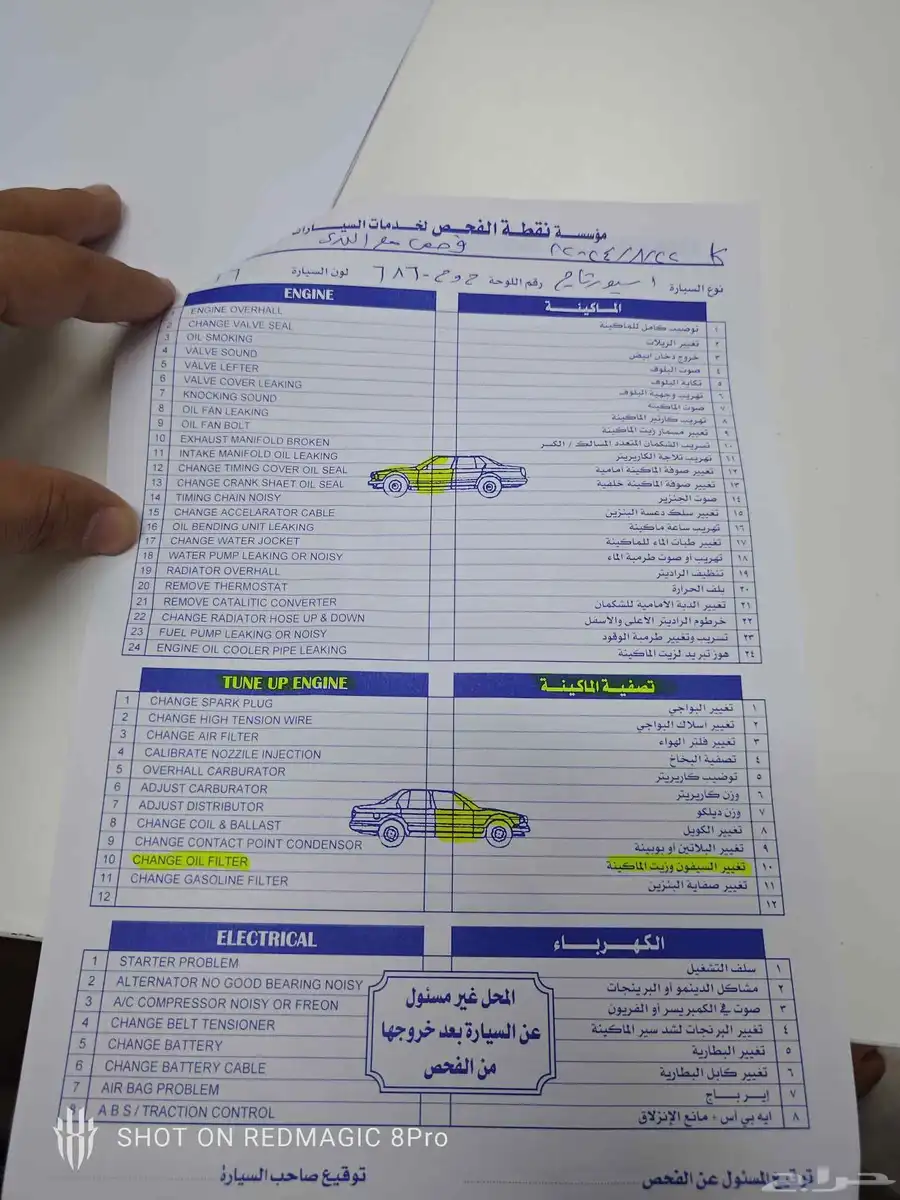 مؤسسة نقطة الفحص لخدمات السيارات
٢٠٢٤/٨/٢٢
نوع السيارة اسبورتاج رقم اللوحة ٦٨٦ لون السيارة
ENGINE الماكينة
1 ENGINE OVERHALL توضيب كامل للماكينة ١
2 CHANGE VALVE SEAL تغيير الربلات ٢
3 OIL SMOKING خروج دخان ابيض ٣
4 VALVE SOUND صوت البلوف ٤
5 VALVE LEFTER تكاية البلوف ٥
6 VALVE COVER LEAKING تهريب وجهية البلوف ٦
7 KNOCKING SOUND صوت الماكينة ٧
8 OIL FAN LEAKING تهريب كارتير الماكينة ٨
9 OIL FAN BOLT تغيير مسمار زيت الماكينة ٩
10 EXHAUST MANIFOLD BROKEN تسريب الشكمان المتعدد المسالك / الكسر ١٠
11 INTAKE MANIFOLD OIL LEAKING تهريب ثلاجة الكاربريتر ١١
12 CHANGE TIMING COVER OIL SEAL تغيير صوفة الماكينة امامية ١٢
13 CHANGE CRANK SHAET OIL SEAL تغيير صوفة الماكينة خلفية ١٣
14 TIMING CHAIN NOISY صوت الجنزير ١٤
15 CHANGE ACCELARATOR CABLE تغيير سلك دعسة البنزين ١٥
16 OIL BENDING UNIT LEAKING تهريب ساعة ماكينة ١٦
17 CHANGE WATER JOCKET تغيير طبات الماء للماكينة ١٧
18 WATER PUMP LEAKING OR NOISY تهريب أو صوت طرمبة الماء ١٨
19 RADIATOR OVERHALL تنظيف الراديتر ١٩
20 REMOVE THERMOSTAT بلف الحرارة ٢٠
21 REMOVE CATALITIC CONVERTER تغيير الدبة الامامية للشكمان ٢١
22 CHANGE RADIATOR HOSE UP & DOWN خرطوم الراديتر الأعلى والاسفل ٢٢
23 FUEL PUMP LEAKING OR NOISY تسريب وتغيير طرمبة الوقود ٢٣
24 ENGINE OIL COOLER PIPE LEAKING هوز تبريد لزيت الماكينة ٢٤
TUNE UP ENGINE تصفية الماكينة
1 CHANGE SPARK PLUG تغيير البواجي ١
2 CHANGE HIGH TENSION WIRE تغيير اسلاك البواجي ٢
3 CHANGE AIR FILTER تغيير فلتر الهواء ٣
4 CALIBRATE NOZZILE INJECTION تصفية البخاخ ٤
5 OVERHALL CARBURATOR توضيب كاربريتر ٥
6 ADJUST CARBURATOR وزن كاربريتر ٦
7 ADJUST DISTRIBUTOR وزن ديلكو ٧
8 CHANGE COIL & BALLAST تغيير الكويل ٨
9 CHANGE CONTACT POINT CONDENSOR تغيير البلاتين أو بوبينة ٩
10 CHANGE OIL FILTER تغيير السيفون وزيت الماكينة ١٠
11 CHANGE GASOLINE FILTER تغيير صفاية البنزين ١١
12 ١٢
ELECTRICAL الكهرباء
1 STARTER PROBLEM سلف التشغيل ١
2 ALTERNATOR NO GOOD BEARING NOISY مشاكل الدينمو أو البرينجات ٢
3 A/C COMPRESSOR NOISY OR FREON صوت في الكمبريسر أو الفريون ٣
4 CHANGE BELT TENSIONER تغيير البرنجات لشد سير الماكينة ٤
5 CHANGE BATTERY تغيير البطارية ٥
6 CHANGE BATTERY CABLE تغيير كابل البطارية ٦
7 AIR BAG PROBLEM إيربـاج ٧
8 A B S / TRACTION CONTROL ايه بي أس + مانع الإنزلاق ٨
المحل غير مسئول
عن السيارة بعد خروجها
من الفحص
توقيع المسئول عن الفحص توقيع صاحب السيارة
SHOT ON REDMAGIC 8Pro
حراج